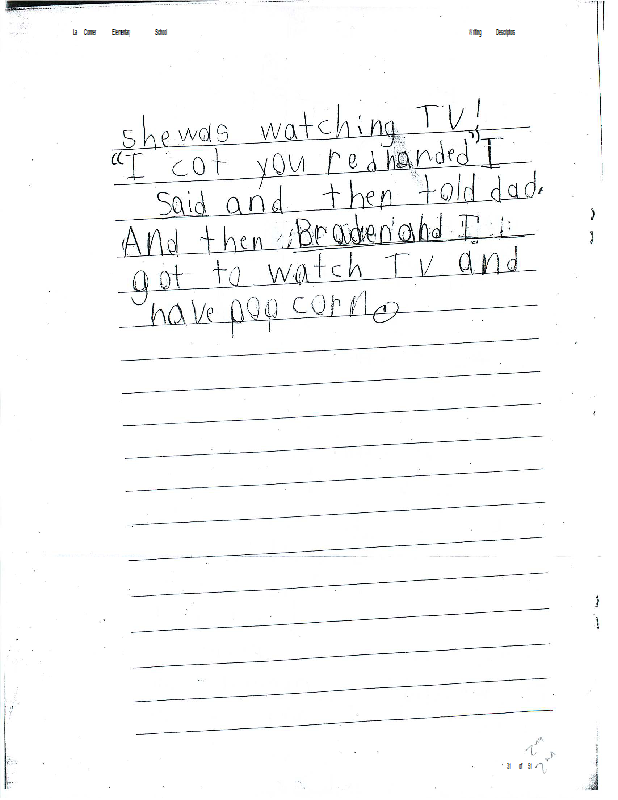 La Conner Elementary School Writing Descriptors
she was watching TV!
"I cot you redhanded" I
Said and then told dad.
And then Braden and I
got to watch TV and
have pop corn.
31 of 51